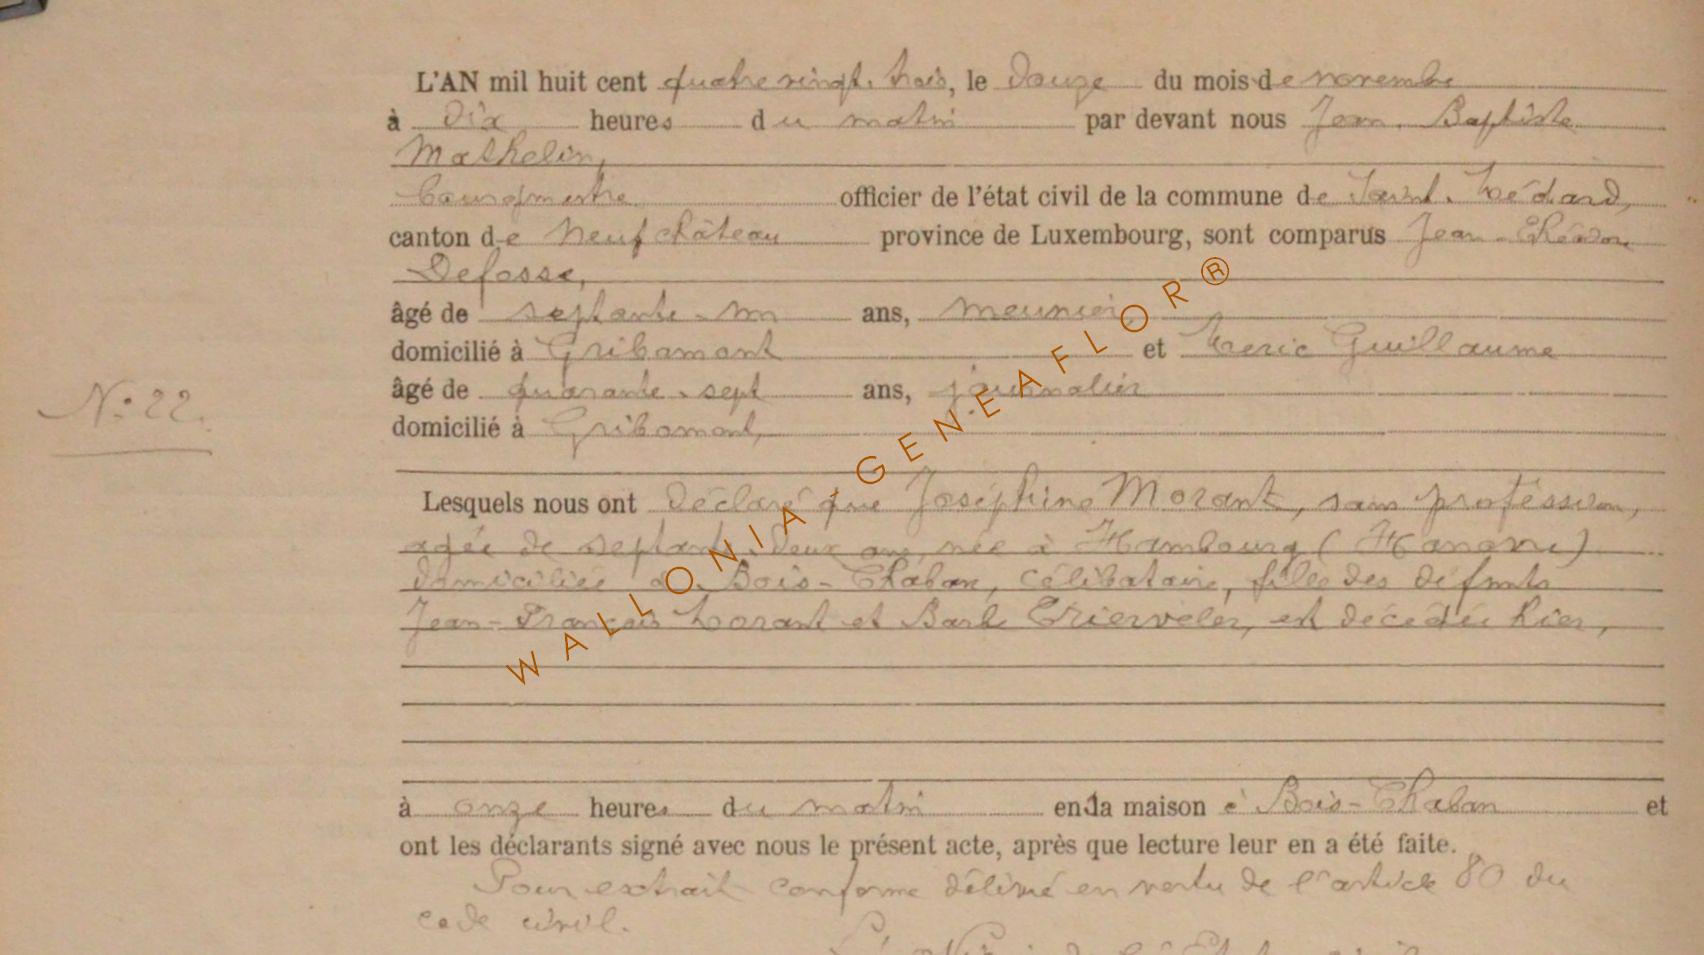 L'AN mil huit cent quatre vingt. trois, le douze du mois de novembre
à dix heures du matin par devant nous Jean. Baptiste
Mathelin,
bourgmestre officier de l'état civil de la commune de Saint. Médard,
canton de Neufchâteau province de Luxembourg, sont comparus Jean-
Defosse,
âgé de septante-un ans, meunier,
domicilié à Gribomont et Guillaume
âgé de quarante-sept ans, journalier
domicilié à Gribomont,
N° 22.
Lesquels nous ont déclaré que Joséphine Morant, sans profession,
agée de septante-deux ans, née à Hambourg (Hanovre)
domiciliée à Bois-Chaban, célibataire, fille des défunts
Jean-François Morant et Barbe Trierveler, est décédée hier,
à onze heures du matin en la maison à Bois-Chaban et
ont les déclarants signé avec nous le présent acte, après que lecture leur en a été faite.
Pour extrait conforme délivré en vertu de l'article 80 du
code civil.
WALLONIA - GENEAFLOR®